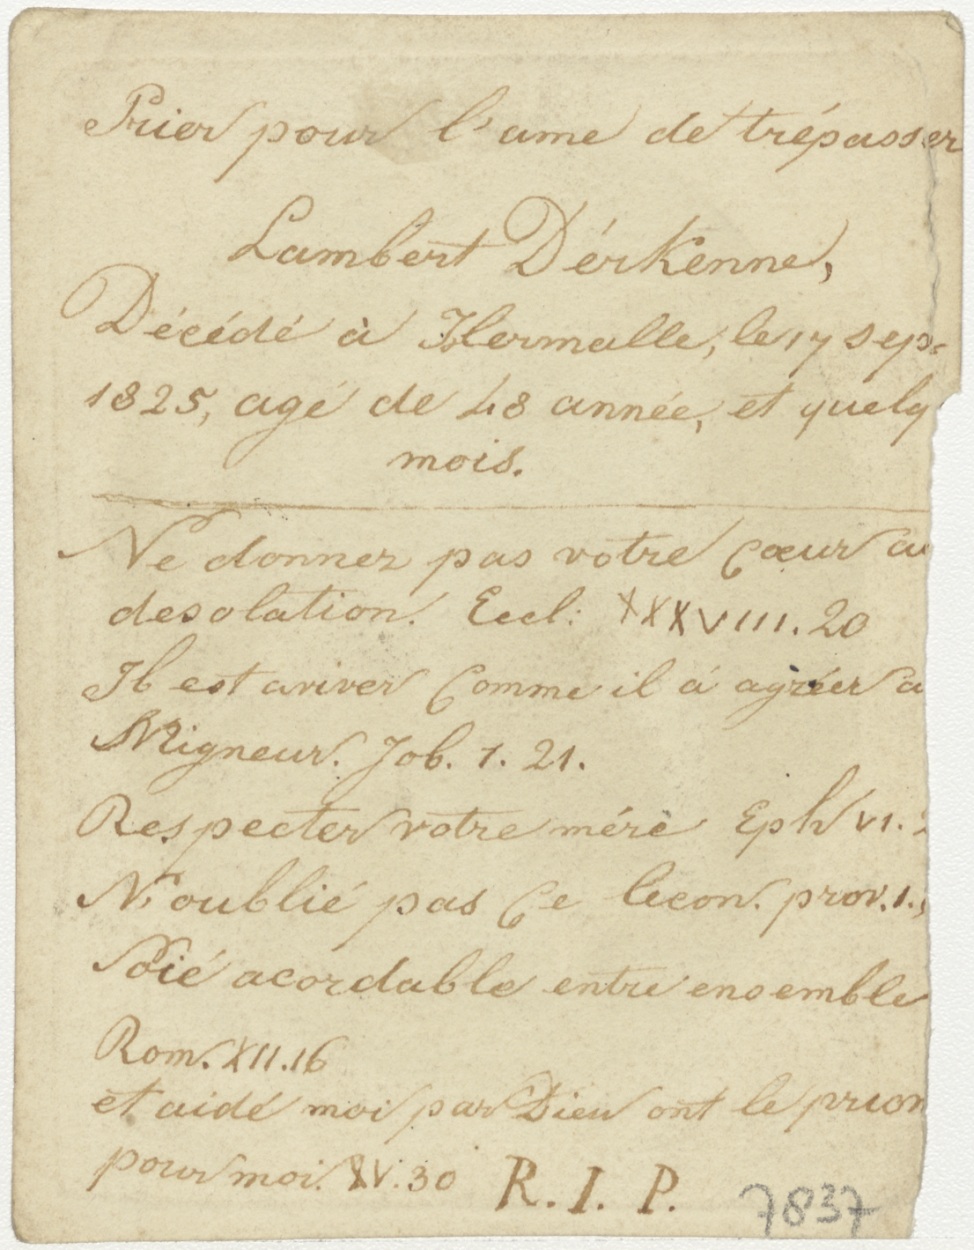 Prier pour l'ame de trépasser
Lambert Dérkenne,
Décédé à Hermalle, le 17 sep:
1825, agé de 48 année, et quelq
mois.
Ne donner pas votre Cœur au
desolation. Eccl: XXXVIII. 20
Il est ariver Comme il á agréer a
Seigneur. Job. 1. 21.
Respecter votre méré Eph VI. 2
N'oublié pas Ce lecon. prov. 1.
Soié acordable entre ensemble
Rom. XII. 16
et aidé moi par Dieu ont le prion
pour moi. XV. 30 R. I. P.
7837